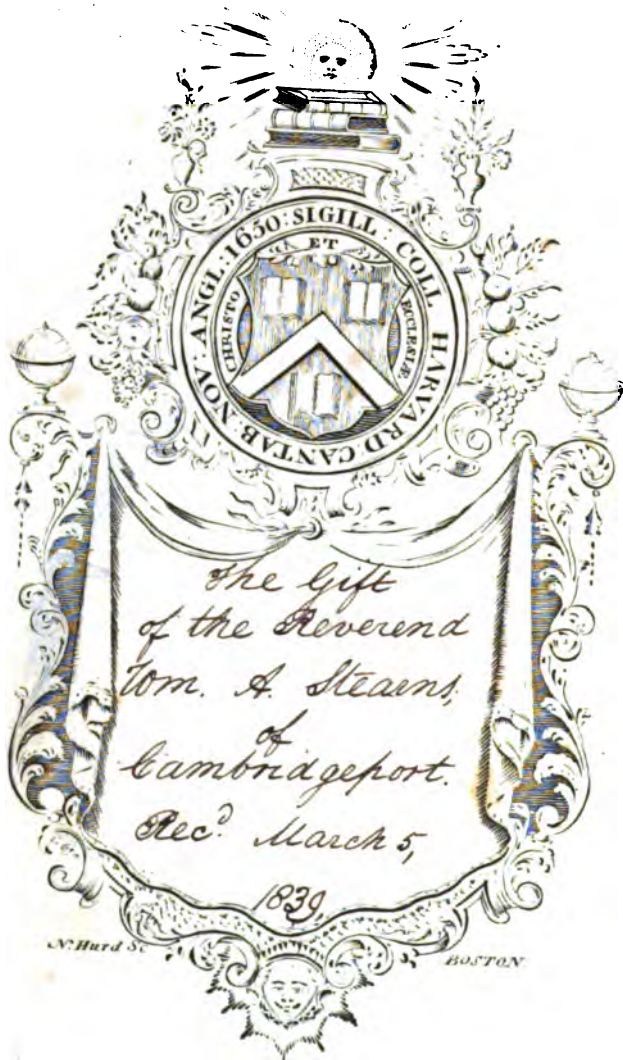 SIGILL : COLL HARVARD CANTAB : NOV : ANGL : 1650 :
CHRISTO ET ECCLESIÆ
The Gift
of the Reverend
Wm. A. Stearns,
of
Cambridgeport.
Rec.d March 5,
1839,
N. Hurd Sc
BOSTON